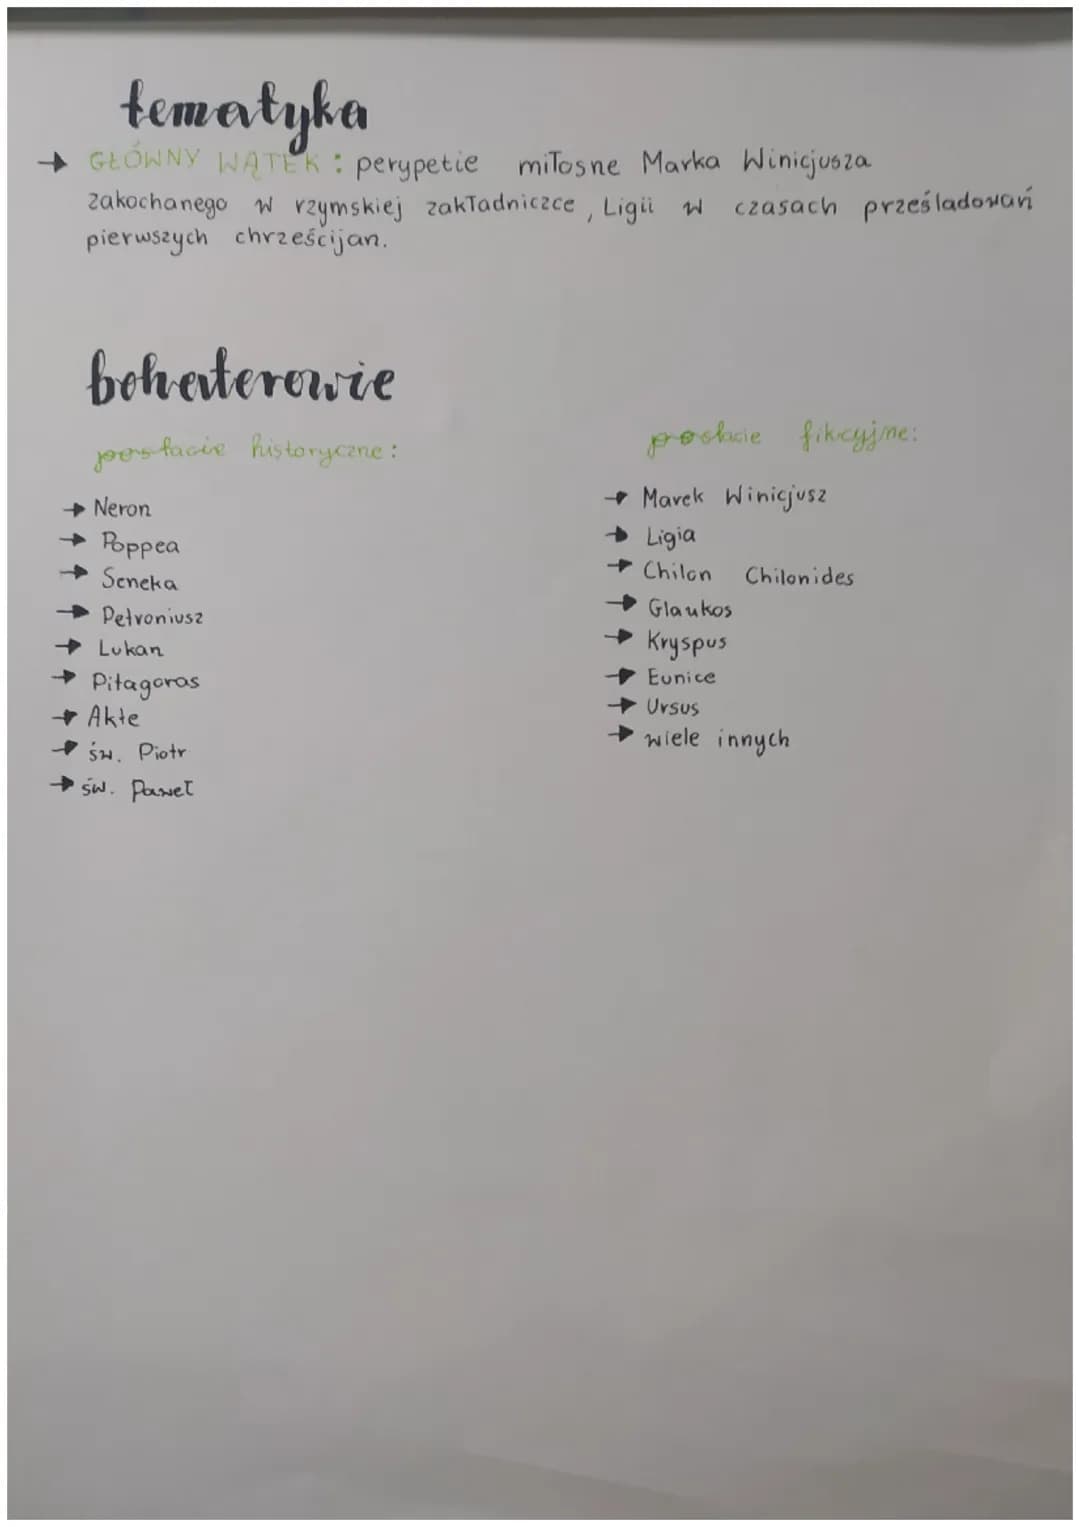 tematyka
→ GŁÓWNY WĄTEK: perypetie miłosne Marka Winicjusza
zakochanego w rzymskiej zakładniczce, Ligii w czasach prześladowań
pierwszych chrześcijan.
bohaterowie
postacie historyczne:
→ Neron
→ Poppea
→ Seneka
→ Petroniusz
→ Lukan
→ Pitagoras
→ Akte
→ św. Piotr
→ św. Paweł
postacie fikcyjne:
→ Marek Winicjusz
→ Ligia
→ Chilon Chilonides
→ Glaukos
→ Kryspus
→ Eunice
→ Ursus
→ wiele innych